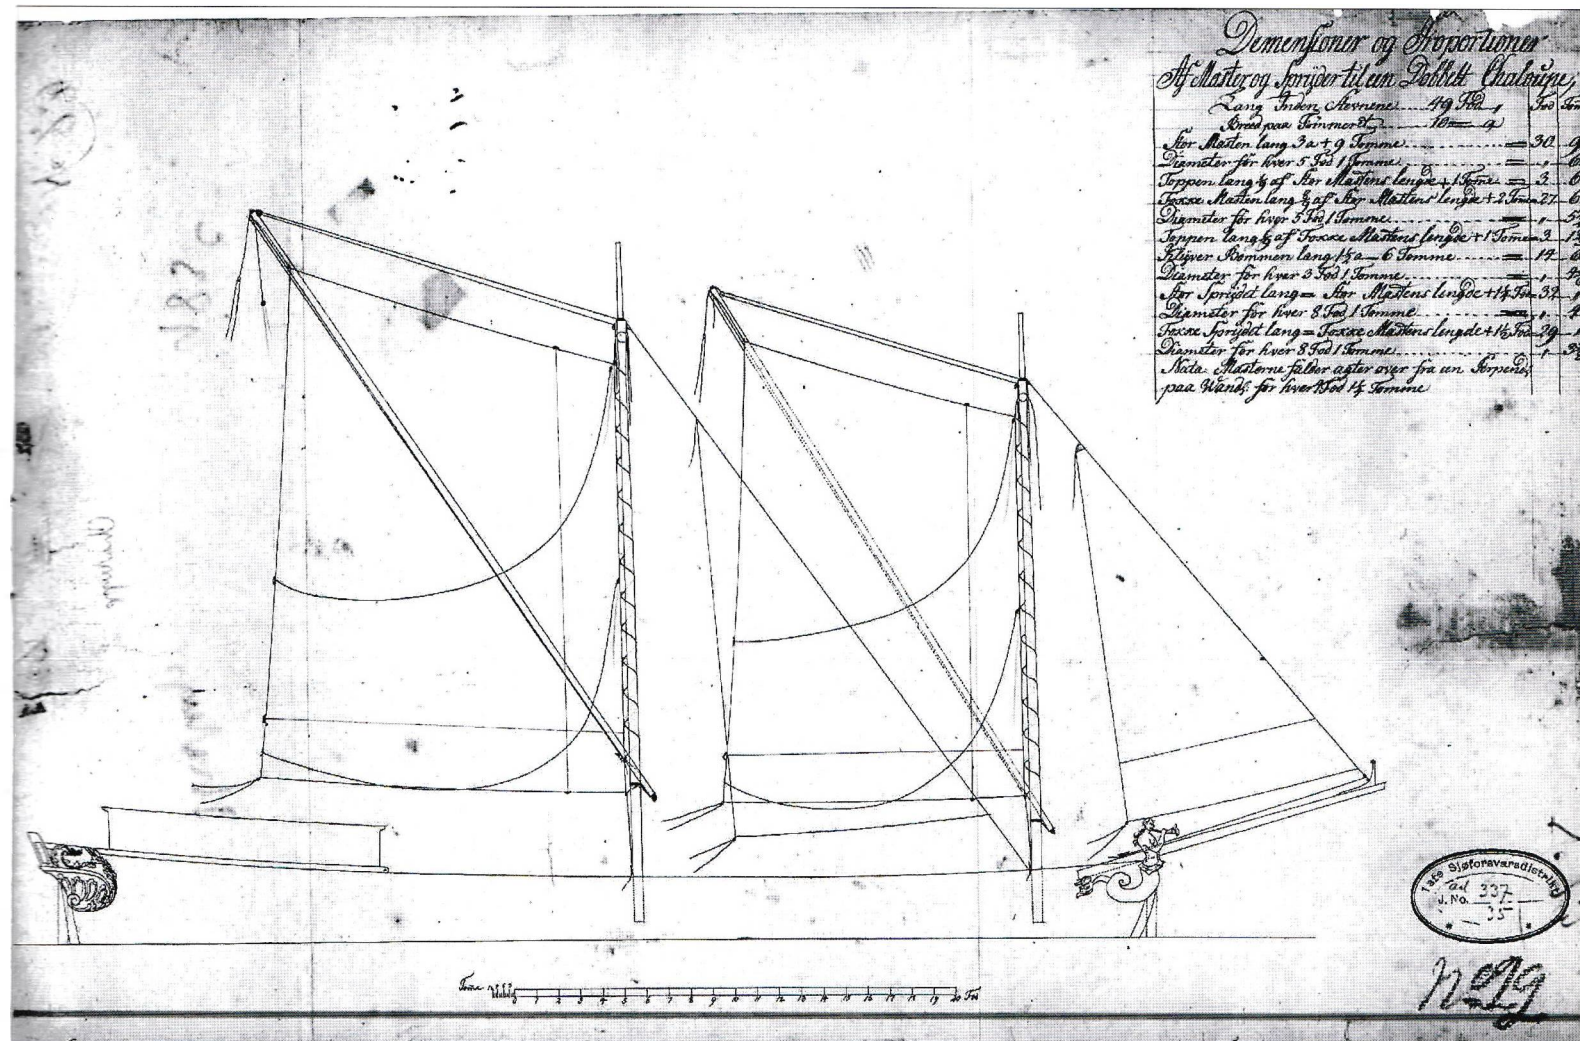 Demensioner og Proportioner
Af Master og Sprijder til een Dobbelt Chaloupe,
Lang Inden Stevnene 49 Fod, Fod Tom
Breed paa Tommeret 10 = 9
Stor Masten lang 3a + 9 Tomme = 30 9
Diameter for hver 5 Fod 1 Tomme = , 6
Toppen lang af Stor Mastens lengde + 1 Tome = 3 6
Fokke Masten lang af Stor Mastens lengde + 2 Tome = 27 6
Diameter for hver 5 Fod 1 Tomme = , 5
Toppen lang af Fokke Mastens lengde + 1 Tome = 3
Klyver Bommen lang 1½a - 6 Tomme = 14 6
Diameter for hver 3 Fod 1 Tomme = ,
Stor Sprijdet lang = Stor Mastens lengde + 1¼ Fod = 32 ,
Diameter for hver 8 Fod 1 Tomme = , 4
Fokke Sprijdet lang = Fokke Mastens lengde + 1½ Fod = 29
Diameter for hver 8 Fod 1 Tomme , 3
Nota Masterne falder agter over fra een
paa for hver Fod 1¼ Tomme
1ste Sjøforsvarsdistrikt
ad
J. No. 337
35
No 29
Tome 0 1 2 3 4 5 6 7 8 9 10 11 12 13 14 15 16 17 18 19 20 Fod